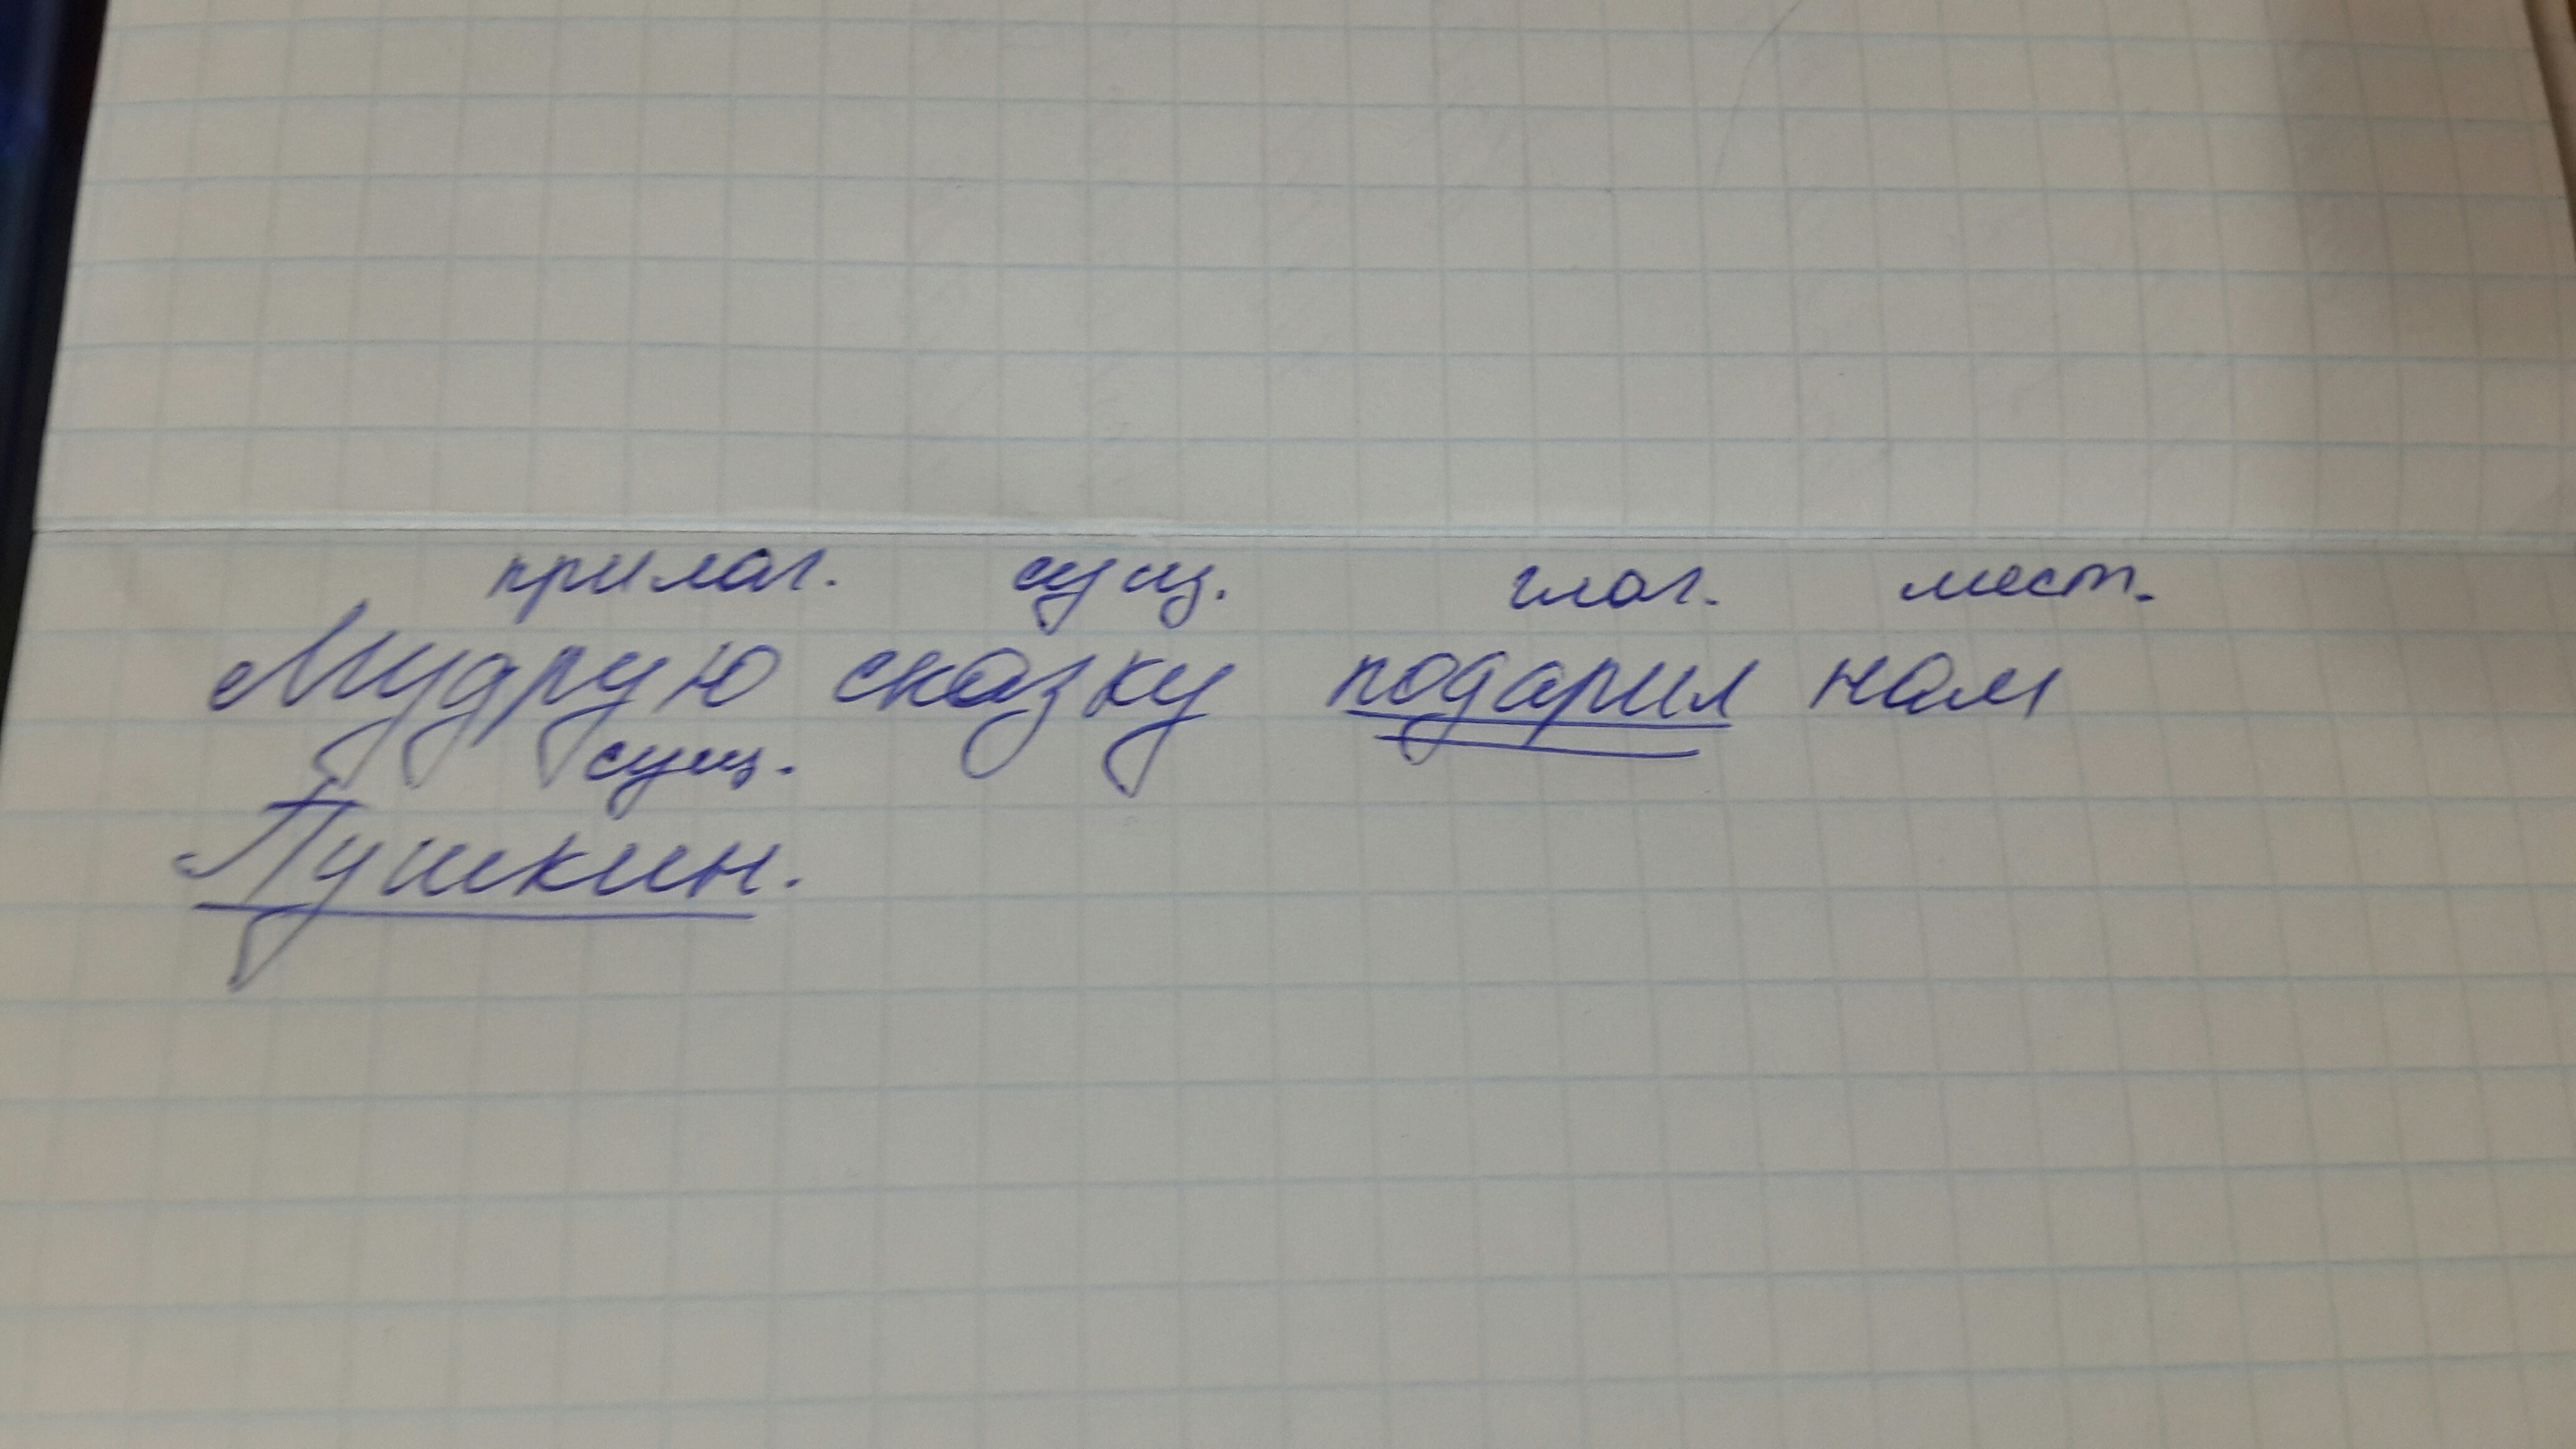 прилаг. сущ. глаг. мест.
Мудрую сказку подарил нам
сущ.
Пушкин.